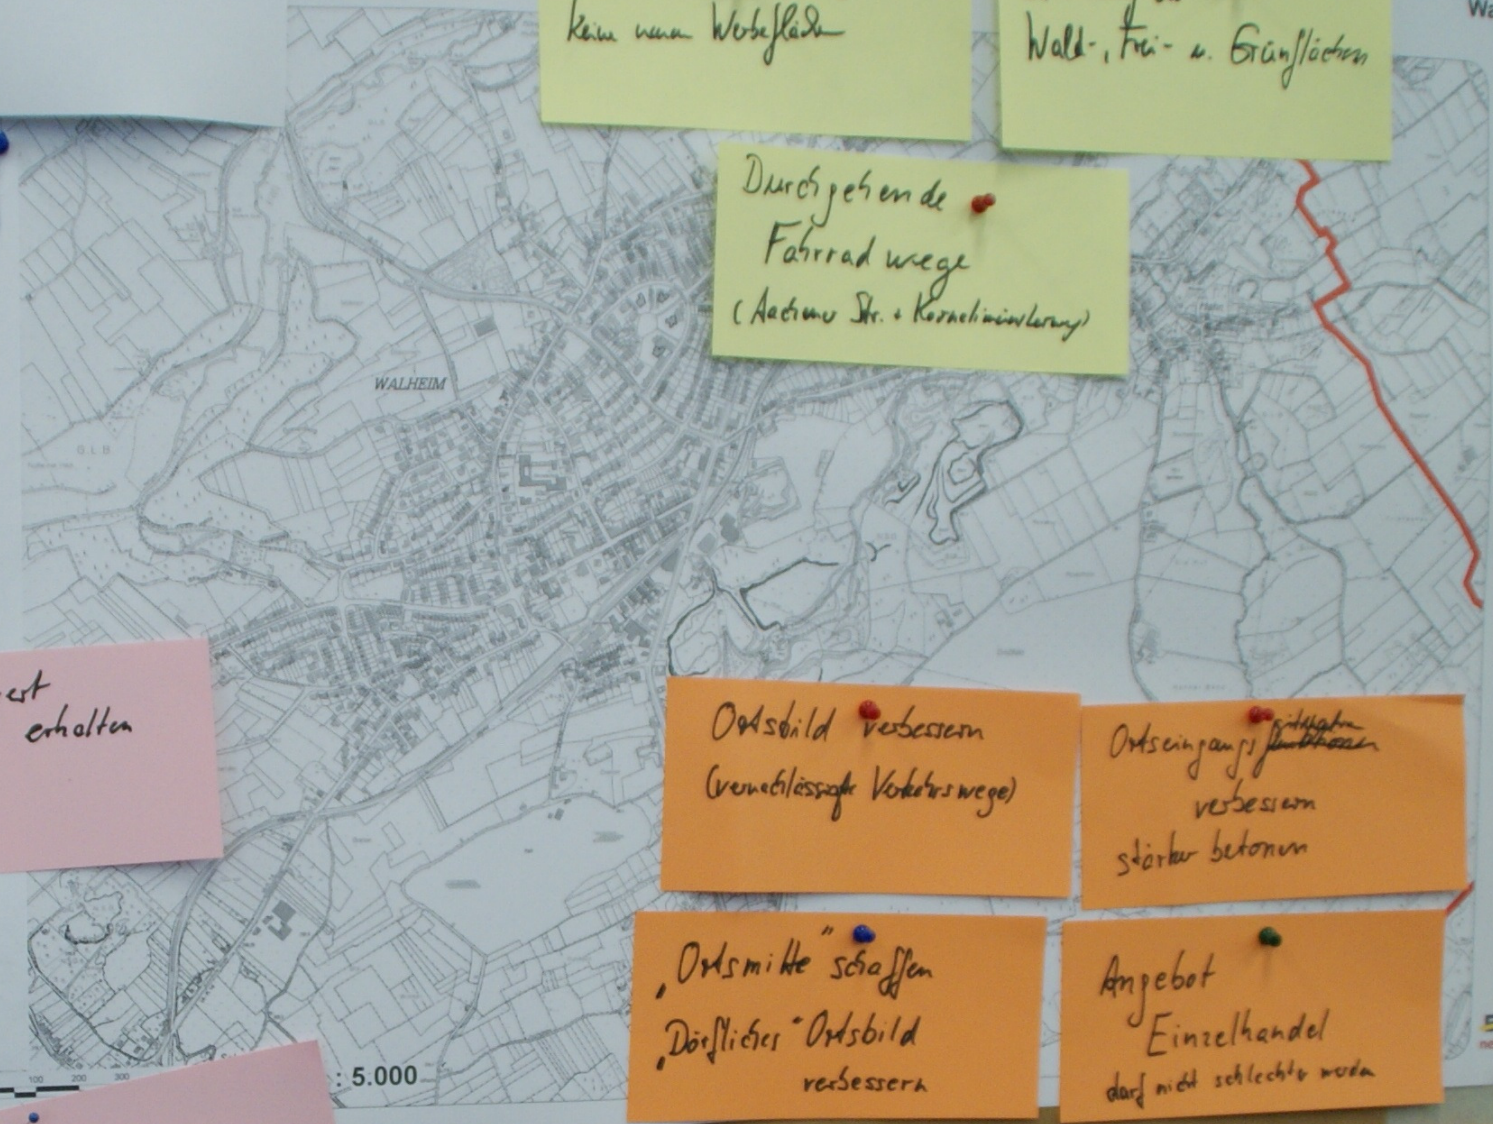 keine neuen Werbeflächen
Wald-, Frei- u. Grünflächen
Durchgehende
Fahrradwege
(Aachener Str. + Kornelimünsterweg)
WALHEIM
ert
erhalten
Ortsbild verbessern
(vernachlässigte Verkehrswege)
Ortseingangs
verbessern
stärker betonen
„Ortsmitte" schaffen
„Dörfliches" Ortsbild
verbessern
Angebot
Einzelhandel
darf nicht schlechter werden
100 200 300
: 5.000